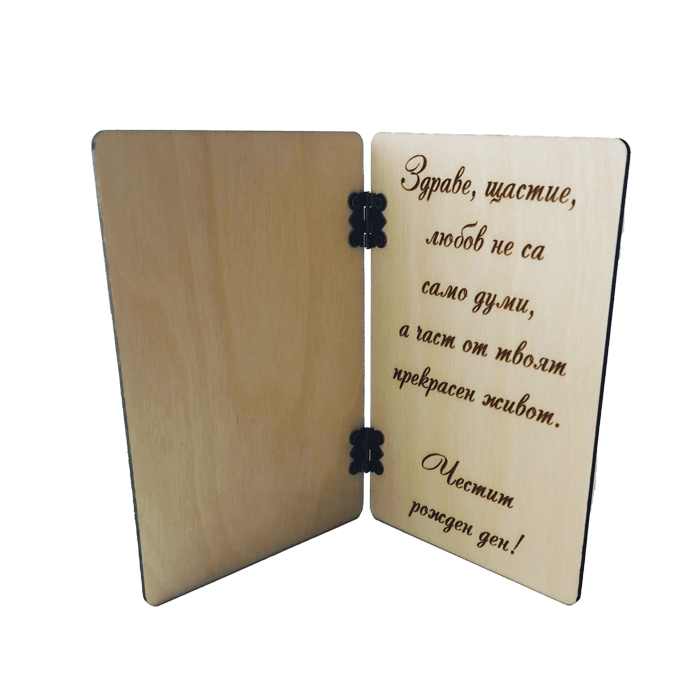 Здраве, щастие,
любов не са
само думи,
а част от твоят
прекрасен живот.
Честит
рожден ден!